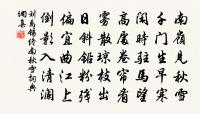 南嶺見秋雪
千門生早寒
閑時駐馬望
高處卷帘看
霧散瓊枝出
日斜鉛粉殘
偏宜曲江上
倒影入清瀾
劉禹錫終南秋雪詞典
網集